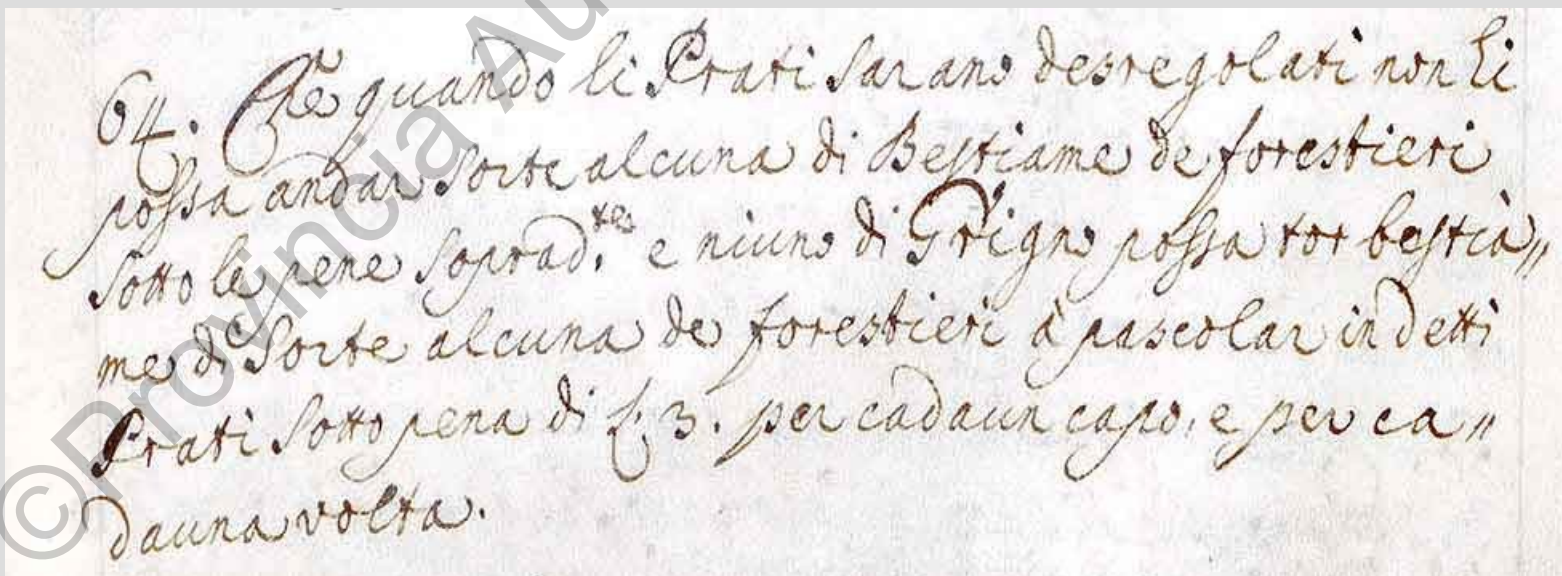 64. Che quando li Prati sarano desregolati non li
possa andar sorte alcuna di Bestiame de forestieri
sotto le pene soprad.te e niuno di Grigno possa tor bestia„
me di sorte alcuna de forestieri à pascolar in detti
Prati sotto pena di £ 3. per cadaun capo, e per ca„
dauna volta.
©Provincia Au